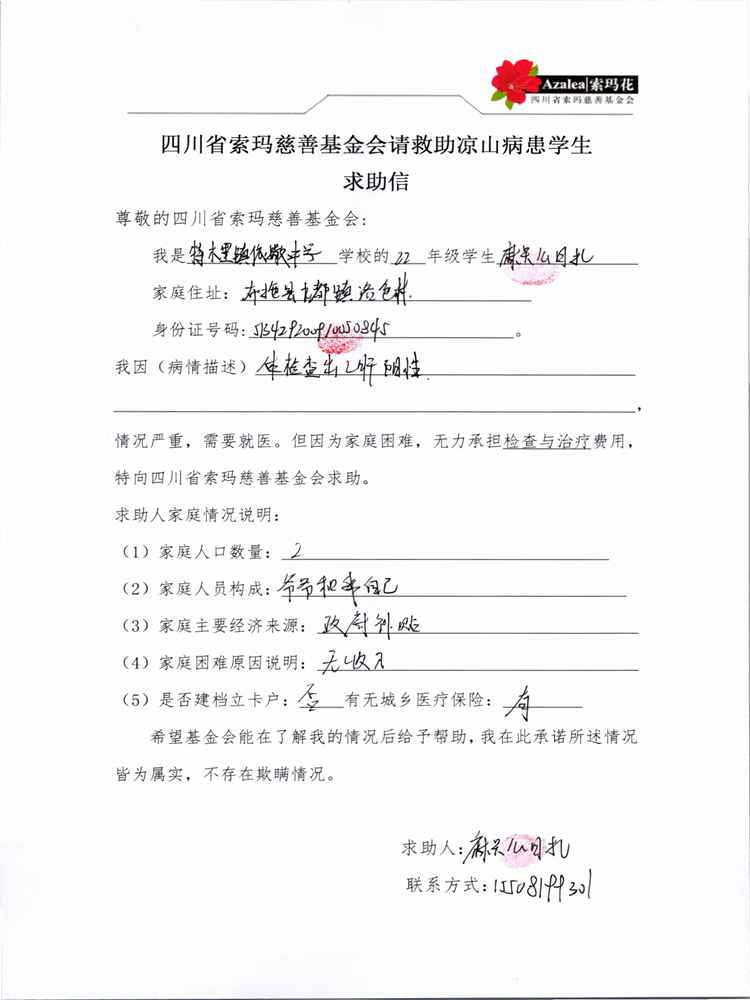 Azalea|索玛花
四川省索玛慈善基金会
四川省索玛慈善基金会请救助凉山病患学生
求助信
尊敬的四川省索玛慈善基金会:
我是特木里镇依 学校的 22 年级学生
家庭住址: 布拖县 都镇洛色村
身份证号码: 513429200910050845 。
我因(病情描述) 体检查出乙肝阳性.
,
情况严重，需要就医。但因为家庭困难，无力承担检查与治疗费用，
特向四川省索玛慈善基金会求助。
求助人家庭情况说明:
(1) 家庭人口数量: 2
(2) 家庭人员构成: 爷爷和我自己
(3) 家庭主要经济来源: 政府补贴
(4) 家庭困难原因说明: 无收入
(5) 是否建档立卡户: 否 有无城乡医疗保险: 有
希望基金会能在了解我的情况后给予帮助，我在此承诺所述情况
皆为属实，不存在欺瞒情况。
求助人:
联系方式: 15508199301